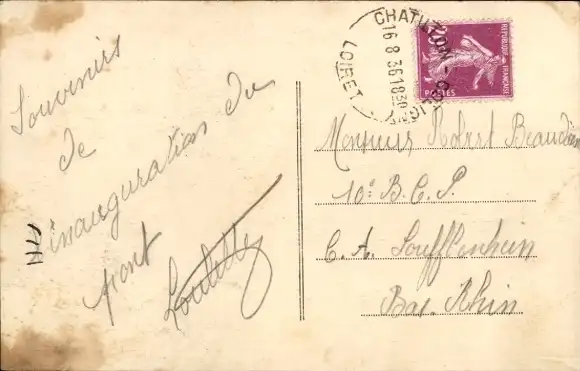 Souvenirs
de
inauguration du
pont
CHATILLON COLIGNY
16 8 36 18 30
LOIRET
REPUBLIQUE FRANÇAISE
POSTES
Monsieur Robert
10e B.C.P.
C. A. Soufflenheim
Bas-Rhin